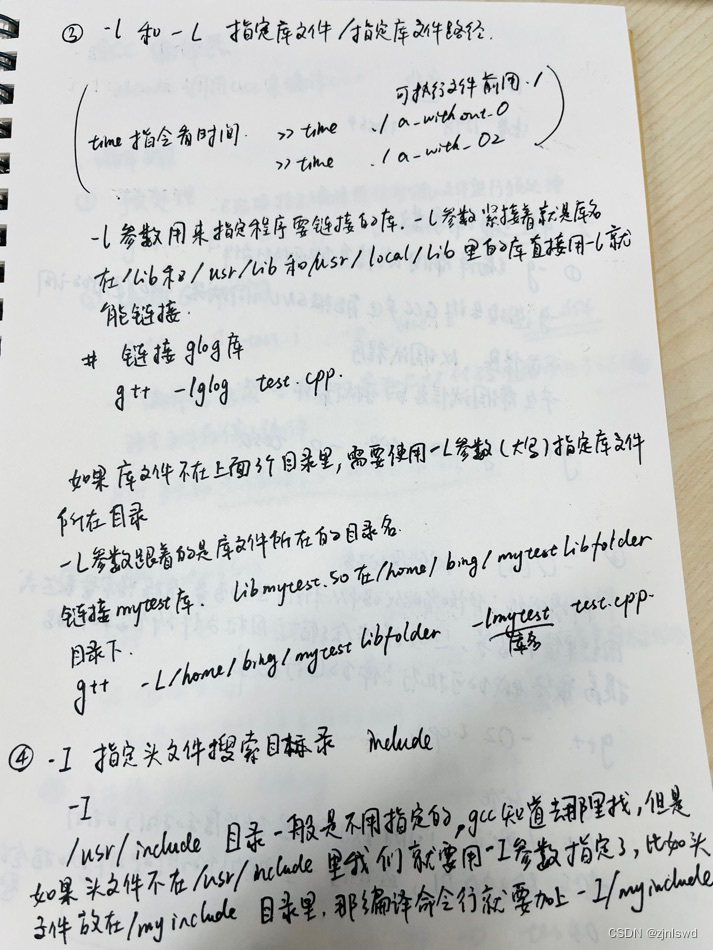 ③ -l 和 -L 指定库文件/指定库文件路径.
可执行文件前用./
time 指令看时间. >> time ./a_without_O
>> time ./a_with_O2
-l参数用来指定程序要链接的库. -l参数紧接着就是库名
在/lib和/usr/lib和/usr/local/lib里的库直接用-l就
能链接.
# 链接glog库
g++ -lglog test.cpp.
如果库文件不在上面3个目录里,需要使用-L参数(大写)指定库文件
所在目录
-L参数跟着的是库文件所在的目录名.
链接mytest库. libmytest.so在/home/bing/mytestlibfolder
目录下.
g++ -L/home/bing/mytestlibfolder -lmytest test.cpp.
库名
④ -I 指定头文件搜索目录 include
-I
/usr/include 目录一般是不用指定的,gcc知道去那里找,但是
如果头文件不在/usr/include里我们就要用-I参数指定了,比如头
文件放在/myinclude目录里,那编译命令行就要加上-I/myinclude
CSDN @zjnlswd